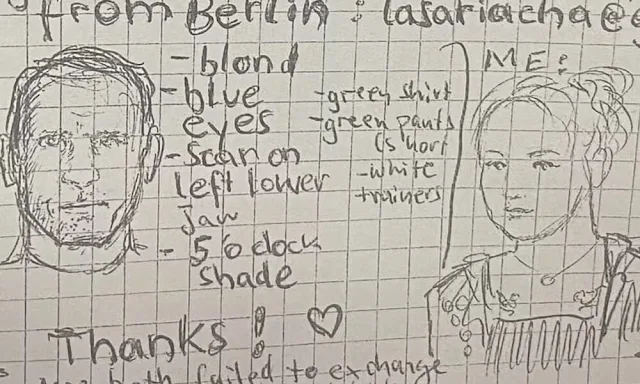 from Berlin : lasariachae
- blond
- blue
eyes
- scan on
left lower
jaw
- 5 o clock
shade
- green shirt
- green pants
(short
- white
trainers
ME:
Thanks !
both failed to exchange